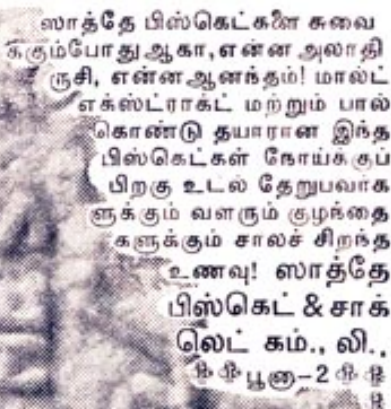 ஸாத்தே பிஸ்கெட்களை சுவை
க்கும்போது ஆகா, என்ன அலாதி
ருசி, என்ன ஆனந்தம்! மால்ட்
எக்ஸ்ட்ராக்ட் மற்றும் பால்
கொண்டு தயாரான இந்த
பிஸ்கெட்கள் நோய்க்கும்
பிறகு உடல் தேறுபவர்க
ளுக்கும் வளரும் குழந்தை
களுக்கும் சாலச் சிறந்த
உணவு! ஸாத்தே
பிஸ்கெட் & சாக்
லெட் கம்., லி.,
பூனா-2